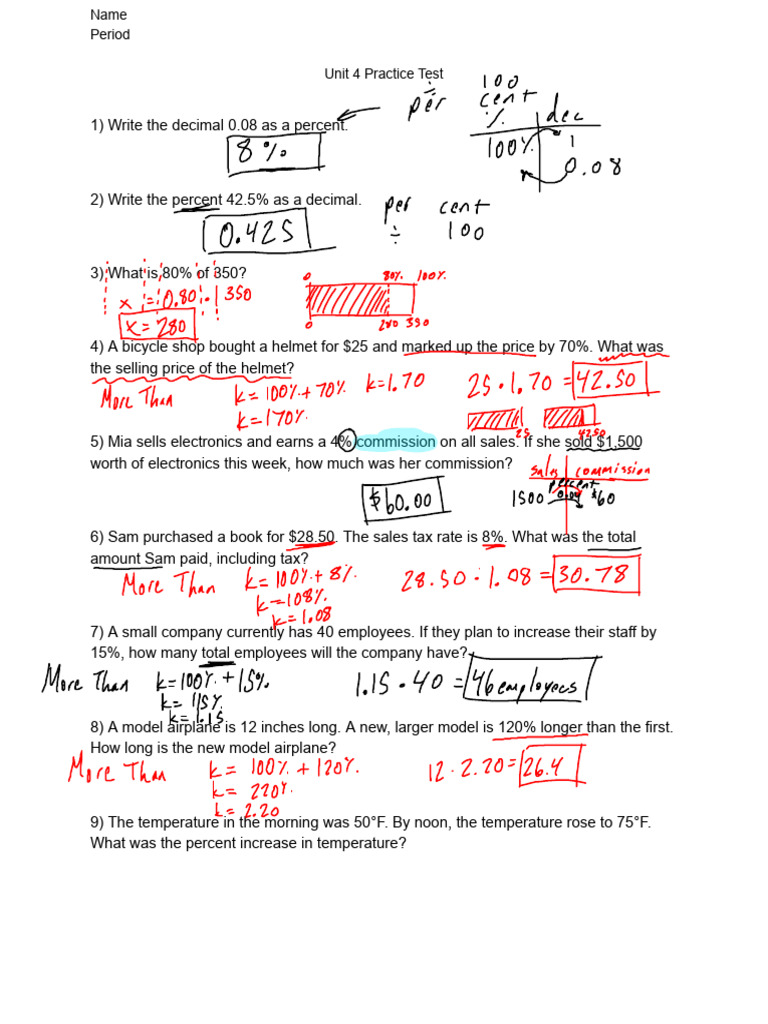 Name
Period
Unit 4 Practice Test
÷ 100
per cent
1) Write the decimal 0.08 as a percent.
% dec
100% 1
0.08
8%
2) Write the percent 42.5% as a decimal.
per cent
÷ 100
0.425
3) What is 80% of 350?
x = 0.80 · 350
x = 280
0 80% 100%
0 280 350
4) A bicycle shop bought a helmet for $25 and marked up the price by 70%. What was
the selling price of the helmet?
More Than k = 100% + 70% k = 1.70 25 · 1.70 = 42.50
k = 170%
25 42.50
5) Mia sells electronics and earns a 4% commission on all sales. If she sold $1,500
worth of electronics this week, how much was her commission?
sales commission
percent
1500 0.04 $60
$60.00
6) Sam purchased a book for $28.50. The sales tax rate is 8%. What was the total
amount Sam paid, including tax?
More Than k = 100% + 8% 28.50 · 1.08 = 30.78
k = 108%
k = 1.08
7) A small company currently has 40 employees. If they plan to increase their staff by
15%, how many total employees will the company have?
More Than k = 100% + 15% 1.15 · 40 = 46 employees
k = 115%
k = 1.15
8) A model airplane is 12 inches long. A new, larger model is 120% longer than the first.
How long is the new model airplane?
More Than k = 100% + 120% 12 · 2.20 = 26.4
k = 220%
k = 2.20
9) The temperature in the morning was 50°F. By noon, the temperature rose to 75°F.
What was the percent increase in temperature?